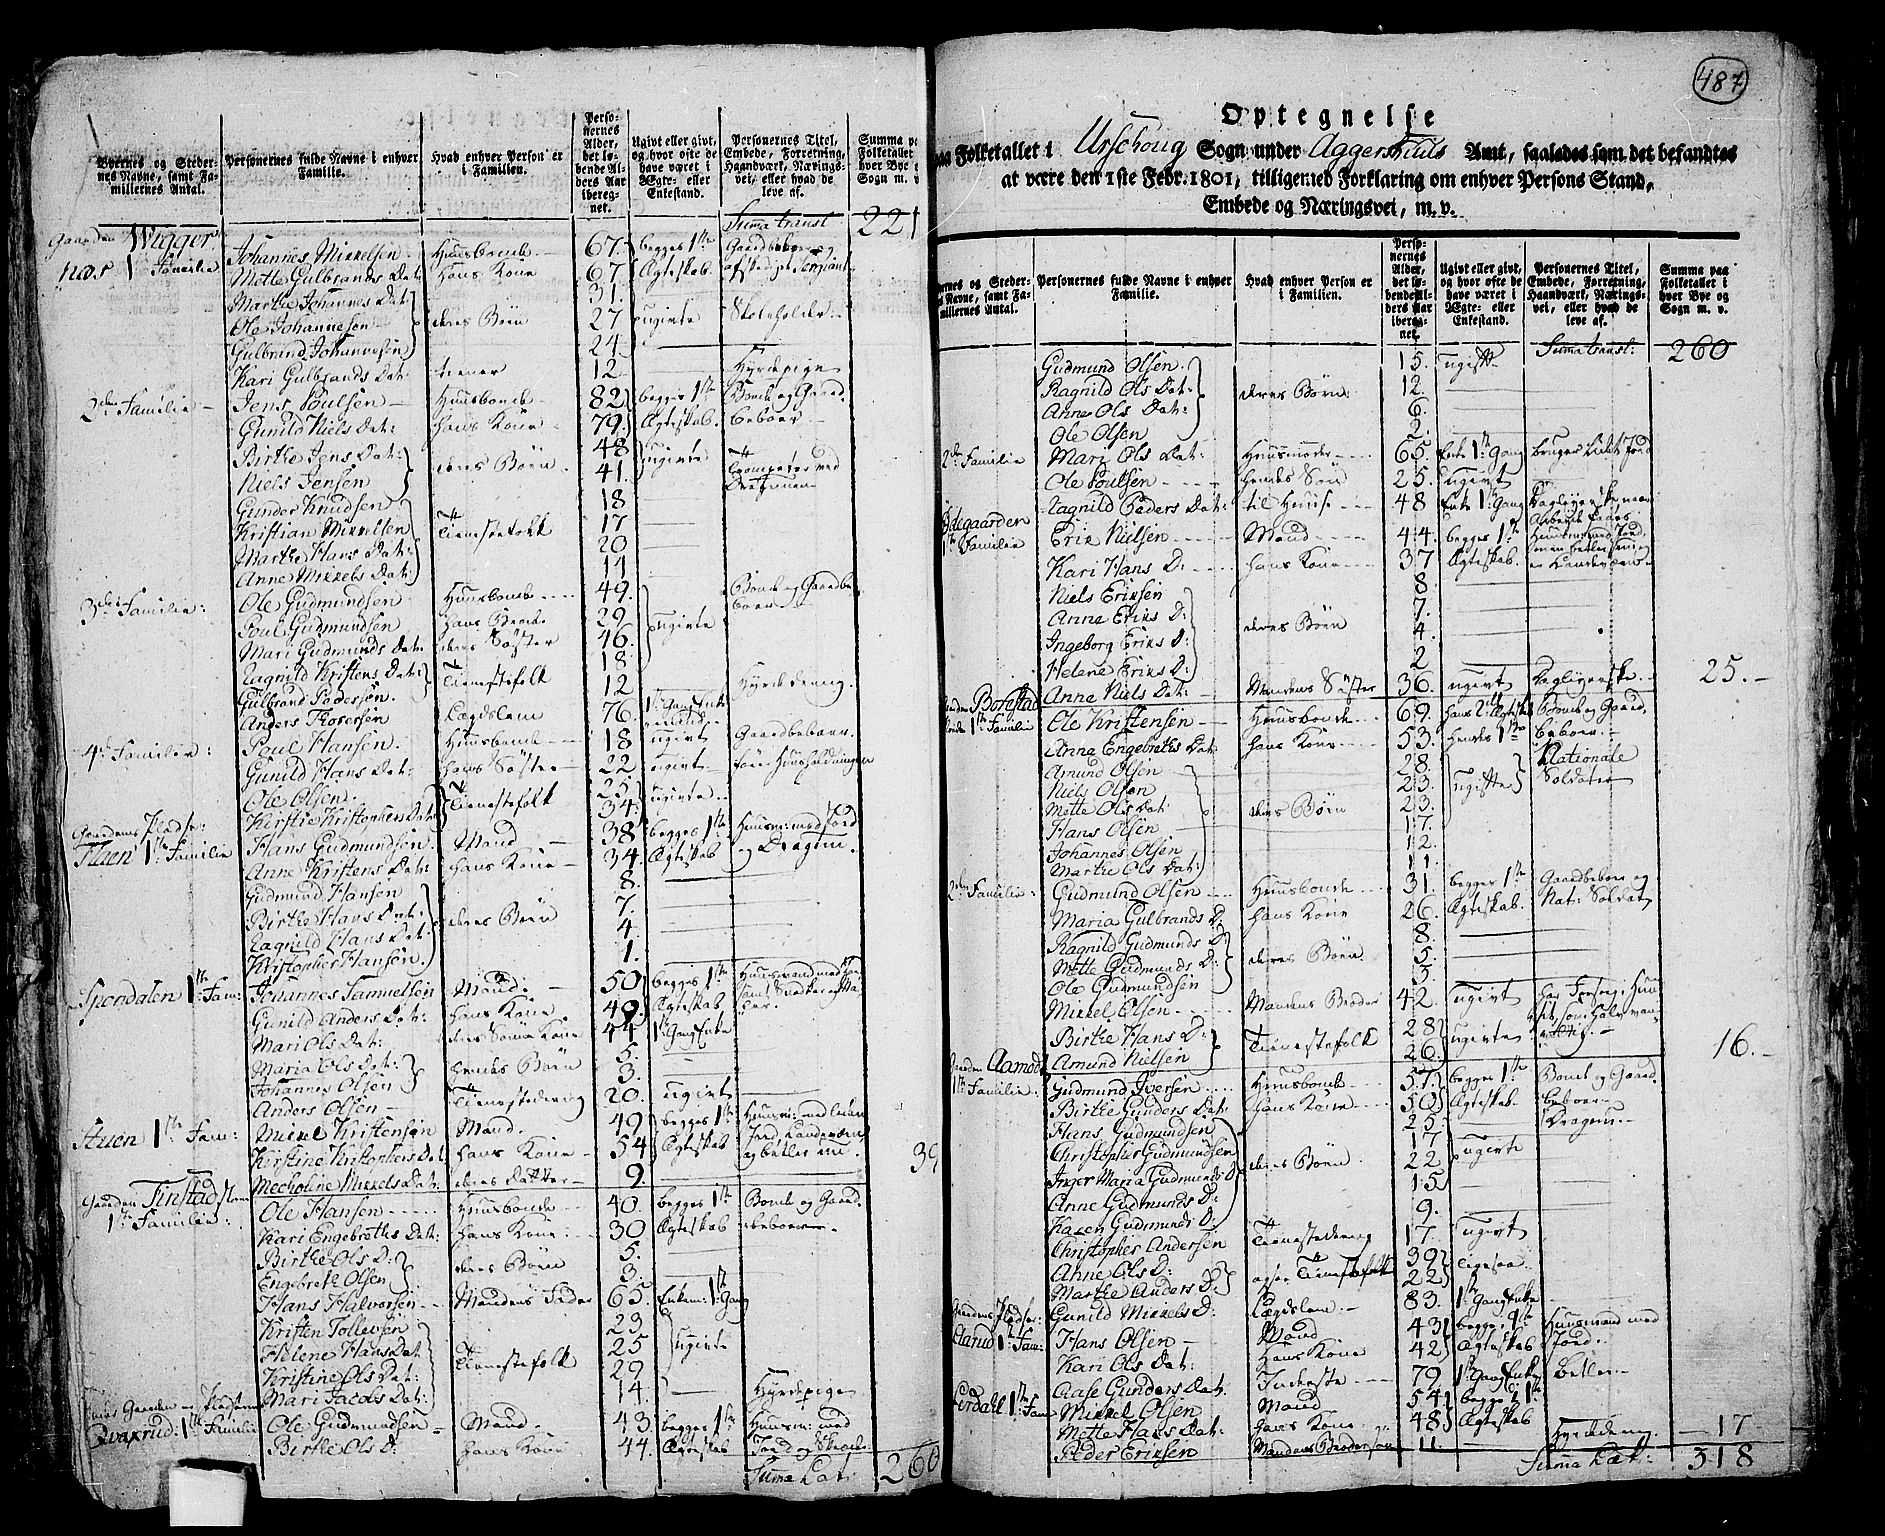 Byernes og Stedernes Navne, samt Familiernes Antal. | Personernes fulde Navne i enhver Familie. | Hvad enhver Person er i Familien. | Personernes Alder, det løbende Alders Aar iberegnet. | Ugivt eller givt, og hvor ofte de have været i Ægte- eller Enkestand. | Personernes Titel, Embede, Forretning, Haandværk, Næringsvei, eller hvad de leve af. | Summa paa Folketallet i hver Bye og Sogn m. v.
Summa transt 221
Gaarden Wiggernæs 1ste Familie Johannes Mikkelsen Huusbonde 67. begges 1ste Gaardbeboer og
Mette Gulbrands Dat: hans Kone 67 Ægteskab. afskediget Sergiant
Marthe Johannes Dat: 31.
Ole Johannesen deres Børn 27 ugivte Skoleholder
Gulbrand Johannesen 24
Kari Gulbrands Dat: tiener 12 Hyrdepige
2den Familie Jens Poulsen Huusbonde 82 begges 1ste Bonde og Gaard
Gunild Niels Dat: hans Kone 79. Ægteskab. beboer
Birthe Jens Dat: 48
Niels Jensen deres Børn 41. ugivte
Gunder Knudsen 18
Kristian Mikkelsen Tienestefolk 17
Marthe Hans Dat: 20
Anne Mikkels Dat: 11
3die Familie: Ole Gudmundsen Huusbonde 49. Bonde og Gaardbeboer
Poul Gudmundsen hans Broder 29 ugivte
Mari Gudmunds Dat: deres Søster 46.
Ragnild Kristens Dat: Tienestefolk 18
Gulbrand Pedersen. 12 Hyrdedreng.
Anders Thorersen Lægdslem 76. 1ste Gang Enkemand
4de Familie: Poul Hansen. Huusbonde 18 ugivt Gaardbeboer.
Gunild Hans Dat: hans Søster 22 ugivt for Huusholdningen
Ole Olsen. Tienestefolk 25 ugivte
Kirstie Kristophers Dat: 34.
Gaardens Pladse:
Flaen 1ste Familie Hans Gudmundsen Mand 38 begges 1ste Huusm: med Jord
Anne Kristens Dat: hans Kone 34. Ægteskab og Dragon.
Gudmund Hansen 8.
Birthe Hans Dat: deres Børn 7.
Ragnild Hans Dat: 4
Kristopher Hansen. 1.
Spendalen 1ste Fam: Johannes Samuelsen Mand 50 begges 1ste
Gunild Anders Dat: hans Kone 49. Ægteskab
Mari Ols Dat: deres Søns Kone 44 1ste Gang Enke
Maria Ols Dat: hendes Børn 5.
Johannes Olsen 3.
Anders Olsen Tienestedreng 20. ugivt
Stuen 1ste Fam: Mikkel Kristensen Mand. 49 begges 1ste
Kirstine Kristophers Dat hans Kone 54 Ægteskab 39
Mecholine Mikkels Dat: deres Datter 9.
Gaarden Tinstad 1ste Familie: Ole Hansen Huusbonde 40. begges 1ste Bonde og Gaard
Kari Engebreths Dat: hans Kone 30 Ægteskab beboer
Birthe Ols D: deres Børn 5.
Engebreth Olsen 3.
Hans Halvorsen Mandens Fader 65. Enkem: 1ste Gang
Kristen Tollevsen 23
Helene Hans Dat Tienestefolk 25 ugivte
Kristine Ols Dat: 29
Mari Jacobs Dat: 14. Hyrdepige
Qvaxrud: 1ste Familie Ole Gudmundsen Mand 43 begges 1ste Huusm: med
Birthe Ols D: hans Kone 44. Ægteskab Jord og
Summa Lat: 260
487
Optegnelse
paa Folketallet i Urschoug Sogn under Aggershuus Amt, saaledes som det befandtes
at være den 1ste Febr. 1801, tilligemed Forklaring om enhver Persons Stand,
Embede og Næringsvei, m. v.
Byernes og Stedernes Navne, samt Familiernes Antal. | Personernes fulde Navne i enhver Familie. | Hvad enhver Person er i Familien. | Personernes Alder, det løbende Alders Aar iberegnet. | Ugivt eller givt, og hvor ofte de have været i Ægte- eller Enkestand. | Personernes Titel, Embede, Forretning, Haandværk, Næringsvei, eller hvad de leve af. | Summa paa Folketallet i hver Bye og Sogn m. v.
Summa transt: 260
Gudmund Olsen. 15. ugift
Ragnild Ols Dat: deres Børn 12
Anne Ols Dat: 6.
Ole Olsen 2.
2den Familie Mari Ols Dat: Huusmoder 65. Enke 1ste Gang bruger lidet Jord
Ole Poulsen hendes Søn 25. ugivt
Ragnild Peders Dat: til Huuse 48 Enke 1ste Gang
Ødegaarden 1ste Familie Erik Nielsen Mand 44. begges 1ste
Kari Hans D: hans Kone 37 Ægteskab.
Niels Eriksen 8
Anne Eriks D: deres Børn 7.
Ingeborg Eriks D: 4.
Helene Eriks D: 2
Anne Niels Dat: Mandens Søster 36. ugivt 25.
Gaarden 1ste Familie Ole Kristensen Huusbonde 69. Bonde og Gaard
Anne Engebreths Dat: hans Kone 53. hendes 1ste beboer.
Amund Olsen 28 Nationale
Niels Olsen 23. ugifte Soldater
Mette Ols Dat: deres Børn 23.
Hans Olsen 17.
Johannes Olsen 12.
Marthe Ols Dat: 11.
2den Familie: Gudmund Olsen Huusbonde 31. begges 1ste Gaardbeboer og
Maria Gulbrands D: hans Kone 26. Ægteskab. Nat: Soldat
Ragnild Gudmunds D: 8
Mette Gudmunds D: deres Børn 5.
Ole Gudmundsen 3.
Mikkel Olsen Mandens Broder 42 ugivt
Birthe Hans D: Tienestefolk 28 ugivte
Amund Nielsen 26. 16.
Gaarden Aamodt 1ste Familie: Gudmund Iversen Huusbonde 57. begges 1ste Bonde og Gaard
Birthe Gunders Dat: hans Kone 50 Ægteskab. beboer
Hans Gudmundsen 25. Dragon.
Christopher Gudmundsen deres Børn 17 ugivte
Inger Maria Gudmunds D: 22
Anne Gudmunds D: 15
Karen Gudmunds D: 9.
Christopher Andersen Tienestedreng 17. ugivt
Anne Ols D: ogsaa Tienestefolk 39 ligesaa
Marthe Anders D: 22
Gunild Mikkels D: Lægdslem 83. 1ste Gang Enke
Gaardens Pladse: 1ste Fam: Hans Olsen Mand 43 begges 1ste Huusmand med
Kari Ols Dat: hans Kone 42 Ægteskab Jord.
Aase Gunders Dat: Inderste 79 1ste Gang Enke Betler
Lerdahl 1ste Fam Mikkel Olsen Mand 54 begges 1ste
Mette Hans Dat: hans Kone 48 Ægteskab
Peder Eriksen Mandens Brodersøn 11. Hyrdedreng. 17
Summa Lat: 318